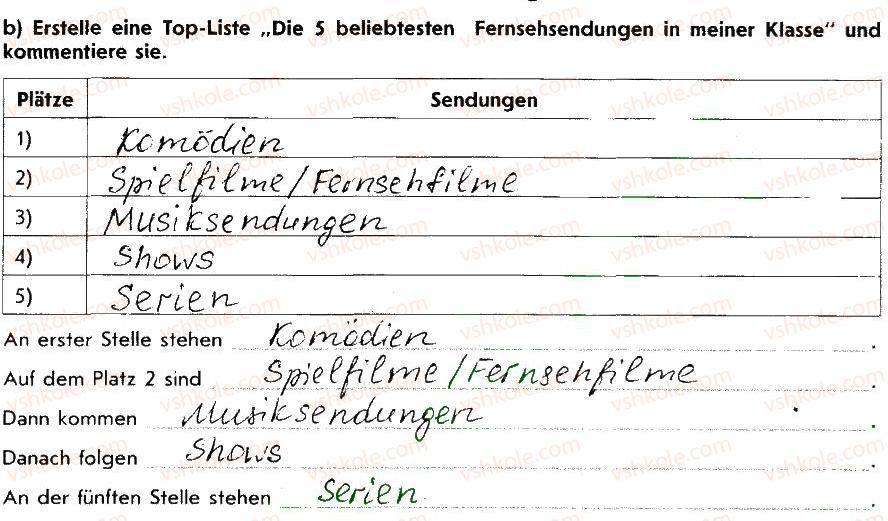 b) Erstelle eine Top-Liste „Die 5 beliebtesten Fernsehsendungen in meiner Klasse“ und
kommentiere sie.
Plätze Sendungen
1) Komödien
2) Spielfilme/Fernsehfilme
3) Musiksendungen
4) Shows
5) Serien
An erster Stelle stehen Komödien.
Auf dem Platz 2 sind Spielfilme/Fernsehfilme.
Dann kommen Musiksendungen.
Danach folgen Shows.
An der fünften Stelle stehen Serien.